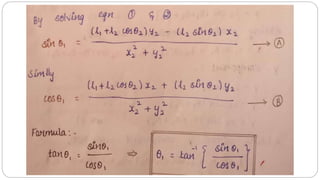 By solving eqn ① & ②
sinθ₁ = ((l₁+l₂ cosθ₂) y₂ − (l₂ sinθ₂) x₂) / (x₂² + y₂²) → Ⓐ
Simlly
cosθ₁ = ((l₁+l₂ cosθ₂) x₂ + (l₂ sinθ₂) y₂) / (x₂² + y₂²) → Ⓑ
Formula :-
tanθ₁ = sinθ₁ / cosθ₁ ⇒ θ₁ = tan⁻¹ { sinθ₁ / cosθ₁ }